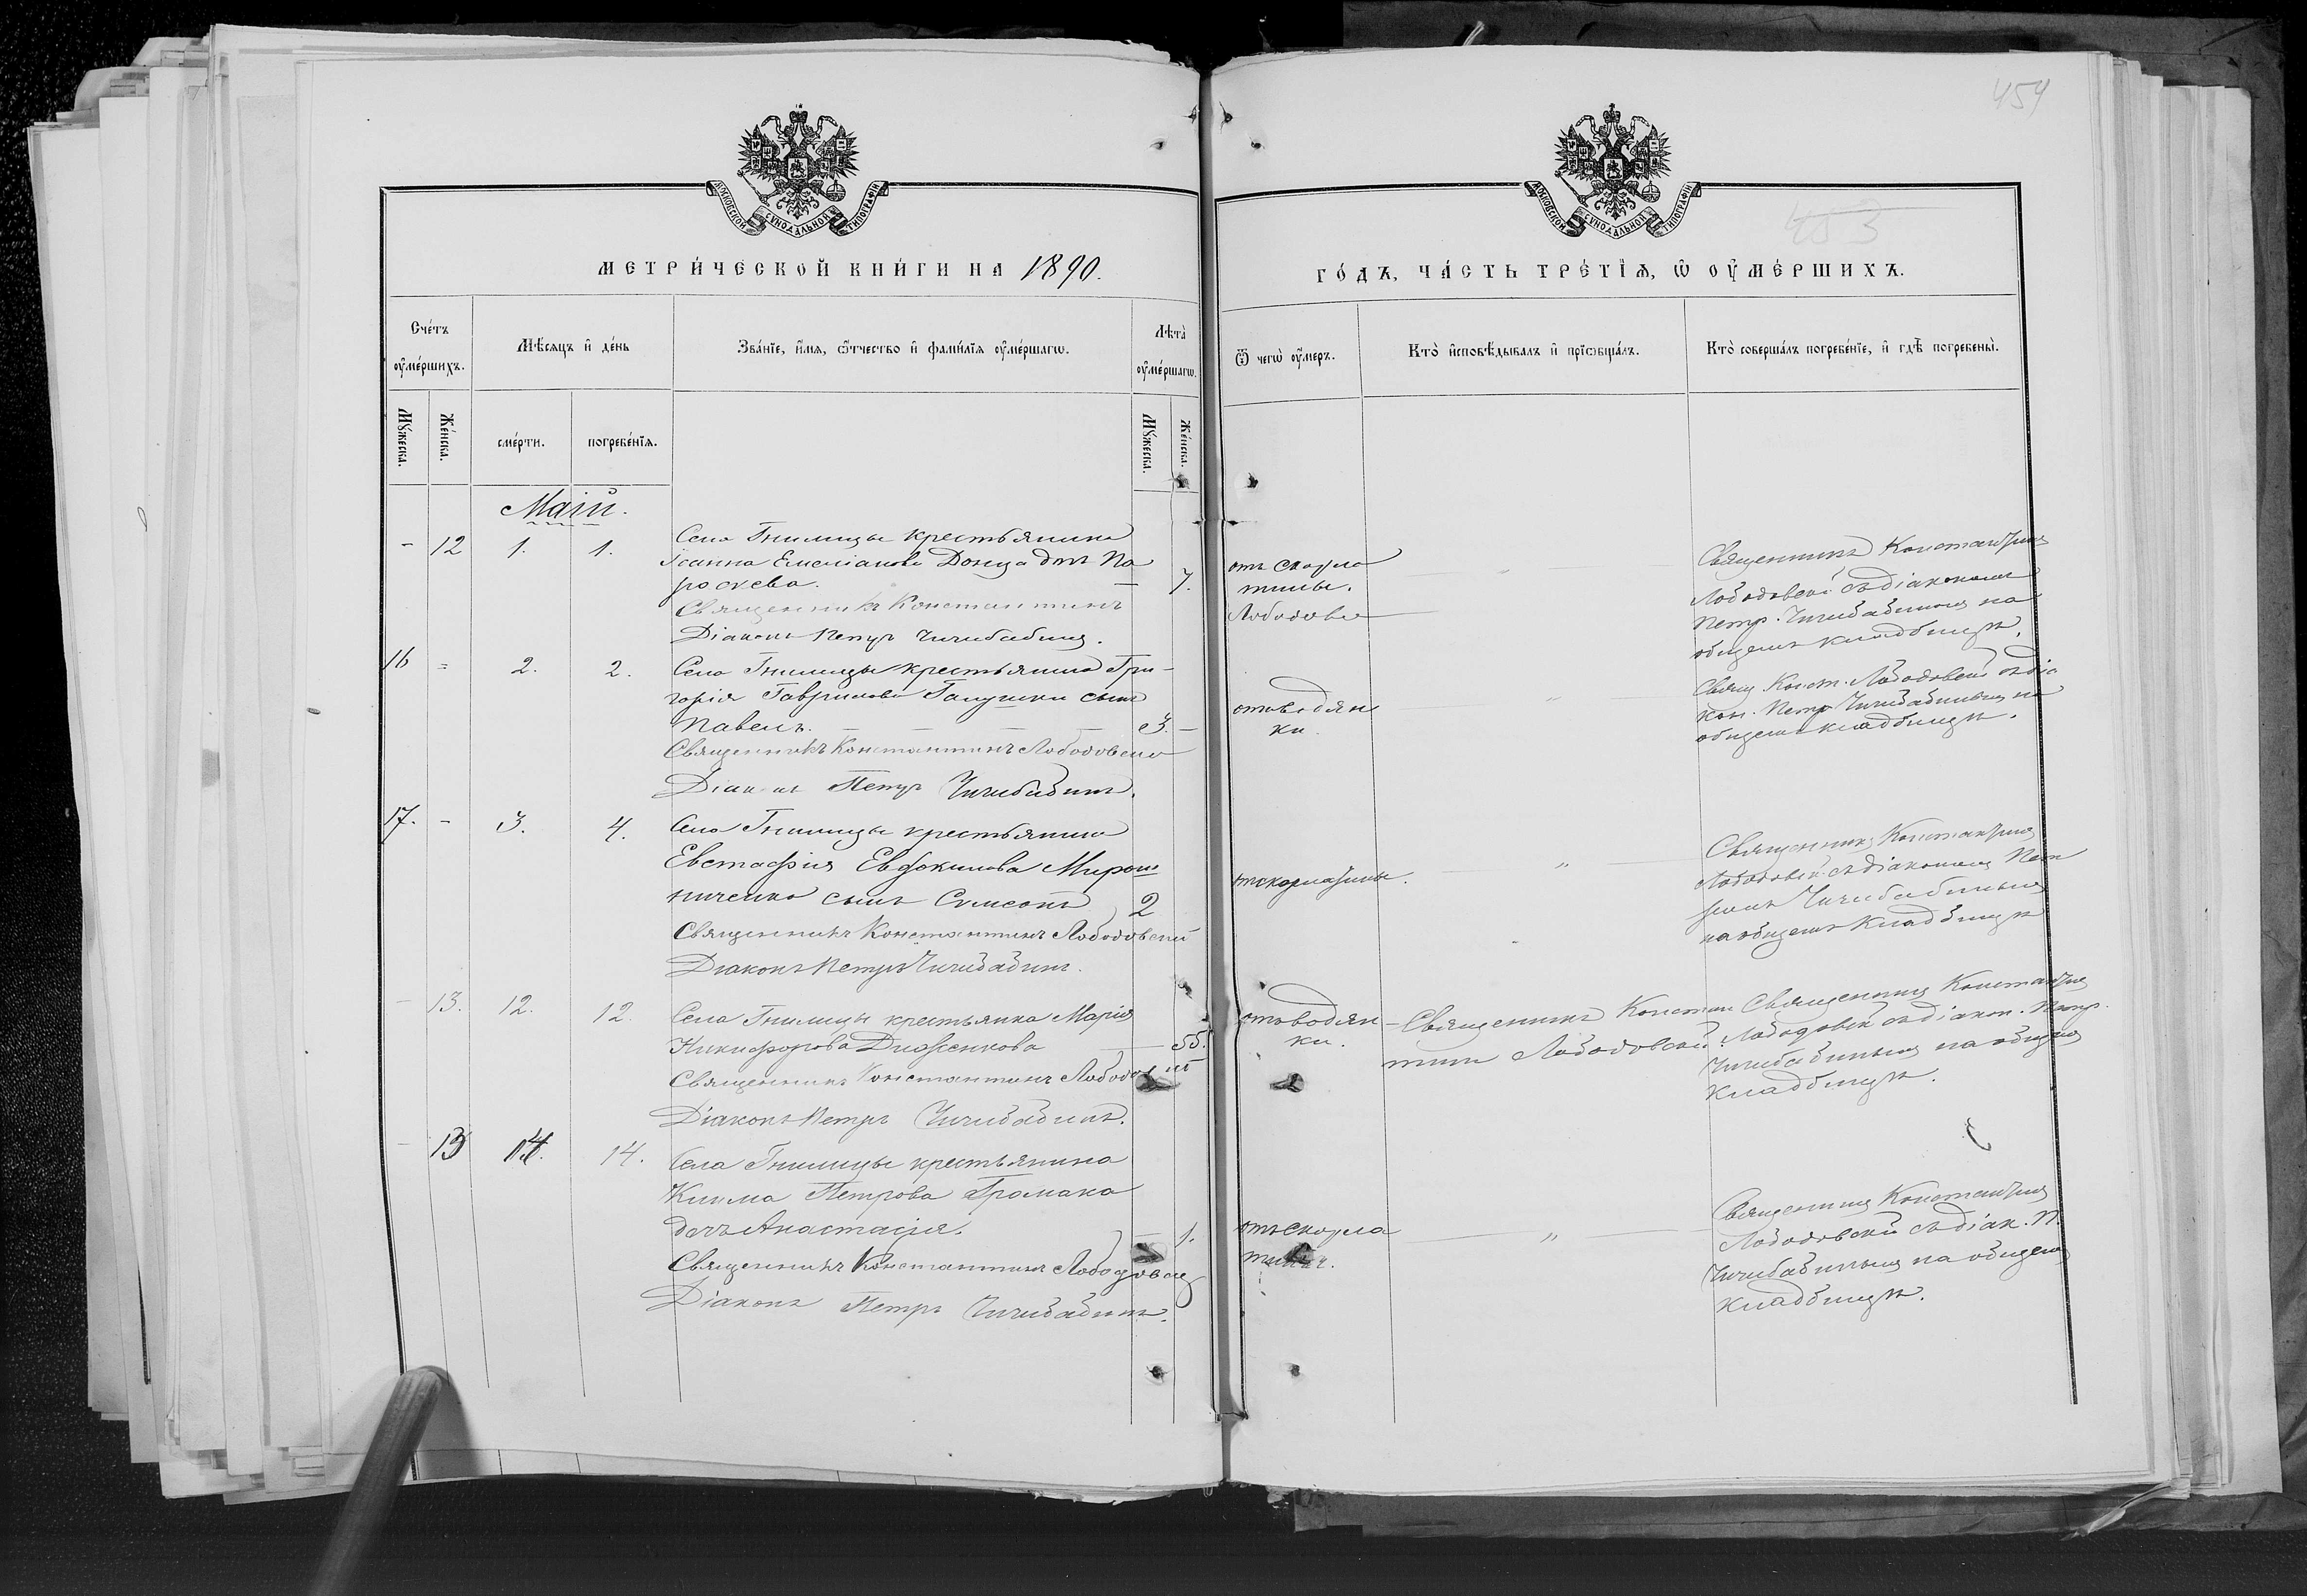 454
453
МОСКОВСКОЙ СѴНОДАЛЬНОЙ ТИПОГРАФІИ
МОСКОВСКОЙ СѴНОДАЛЬНОЙ ТИПОГРАФІИ
МЕТРИ́ЧЕСКОЙ КНИ́ГИ НА 1890.
ГО́ДЪ, ЧА́СТЬ ТРЕ́ТІѦ, Ѡ ОУМЕ́РШИХЪ.
Сче́тъ оуме́ршихъ.
Мѣ́сѧцъ и де́нь
Зва́нїе, и́мѧ, ѻ҆́тчество и фами́лїѧ оуме́ршагѡ.
Лѣта̀ оуме́ршагѡ.
Ѿ чегѡ̀ оу́меръ.
Кто̀ исповѣ́дывалъ и прїѡбща́лъ.
Кто̀ соверша́лъ погребе́нїе, и гдѣ̀ погребены̀.
Мꙋ́жеска.
Же́нска.
сме́рти.
погребе́нїѧ.
Мꙋ́жеска.
Же́нска.
Маій.
- 12 1. 1. Села Гнилицы крестьянина
Іоанна Емеліанова Донца дочь Па
раскева. — 7.
Священникъ Константинъ Лободовс
Діаконъ Петръ Чичибабинъ.
отъ скарла
тины.
Священникъ Константинъ
Лободовскій съ діакономъ
Петр. Чичибабинымъ на
общемъ кладбищѣ.
16 = 2. 2. Села Гнилицы крестьянина Гри-
горія Гаврилова Галушки сынъ
Павелъ. — 3. -
Священникъ Константинъ Лободовскій
Діаконъ Петръ Чичибабинъ.
отъ водян
ки.
Свящ. Конст. Лободовскій съ діа
кон. Петр. Чичибабинымъ на
общемъ кладбищѣ.
17. - 3. 4. Села Гнилицы крестьянина
Евстафія Евдокимова Мирош
ниченко сынъ Сумеонъ 2
Священникъ Константинъ Лободовскій
Діаконъ Петръ Чичибабинъ.
отъ скарлатины. "
Священникъ Константинъ
Лободовскій съ діакономъ Пет
ромъ Чичибабинымъ
на общемъ кладбищѣ
- 13. 12. 12. Села Гнилицы крестьянка Марія
Никифорова — 55.
Священникъ Константинъ Лободовскій
Діаконъ Петръ Чичибабинъ.
отъ водян-
ки.
Священникъ Констан
тинъ Лободовскій.
Священникъ Константинъ
Лободовскій съ діакон. Петр.
Чичибабинымъ на общемъ
кладбищѣ.
- 13 14. 14. Села Гнилицы крестьянина
Клима Петрова Громака
дочь Анастасія. — 1.
Священникъ Константинъ Лободовскій
Діаконъ Петръ Чичибабинъ.
отъ скарла
тины. "
Священникъ Константинъ
Лободовскій съ діак. П.
Чичибабинымъ на общемъ
кладбищѣ.